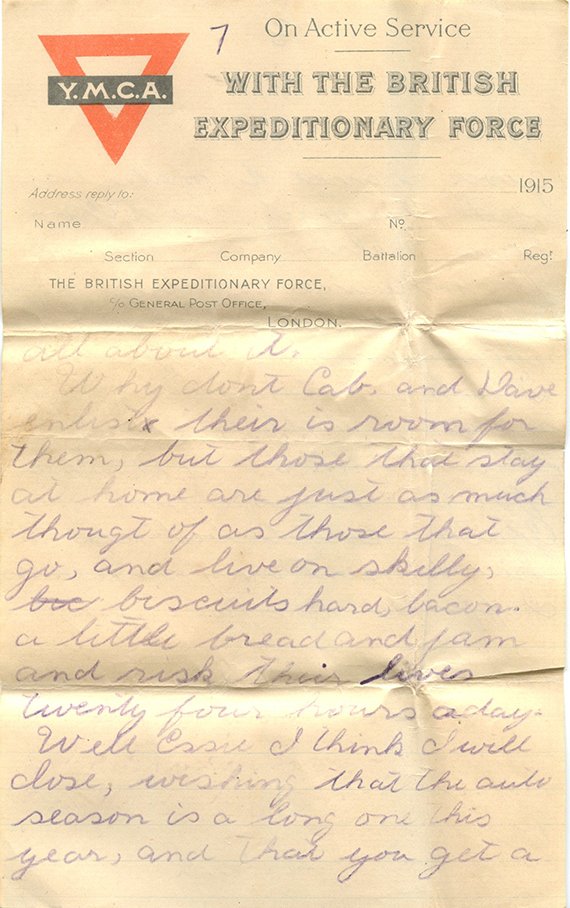 7
On Active Service
Y.M.C.A.
WITH THE BRITISH
EXPEDITIONARY FORCE
1915
Address reply to:
Name No
Section Company Battalion Regt
THE BRITISH EXPEDITIONARY FORCE,
c/o GENERAL POST OFFICE,
LONDON.
all about it.
Why dont Cab. and Dave
enlist their is room for
them, but those that stay
at home are just as much
thougt of as those that
go, and live on skilly,
biscuits hard, bacon.
a little bread and jam
and risk their lives
twenty four hours a day.
Well Essie I think I will
close, wishing that the auto
season is a long one this
year, and that you get a